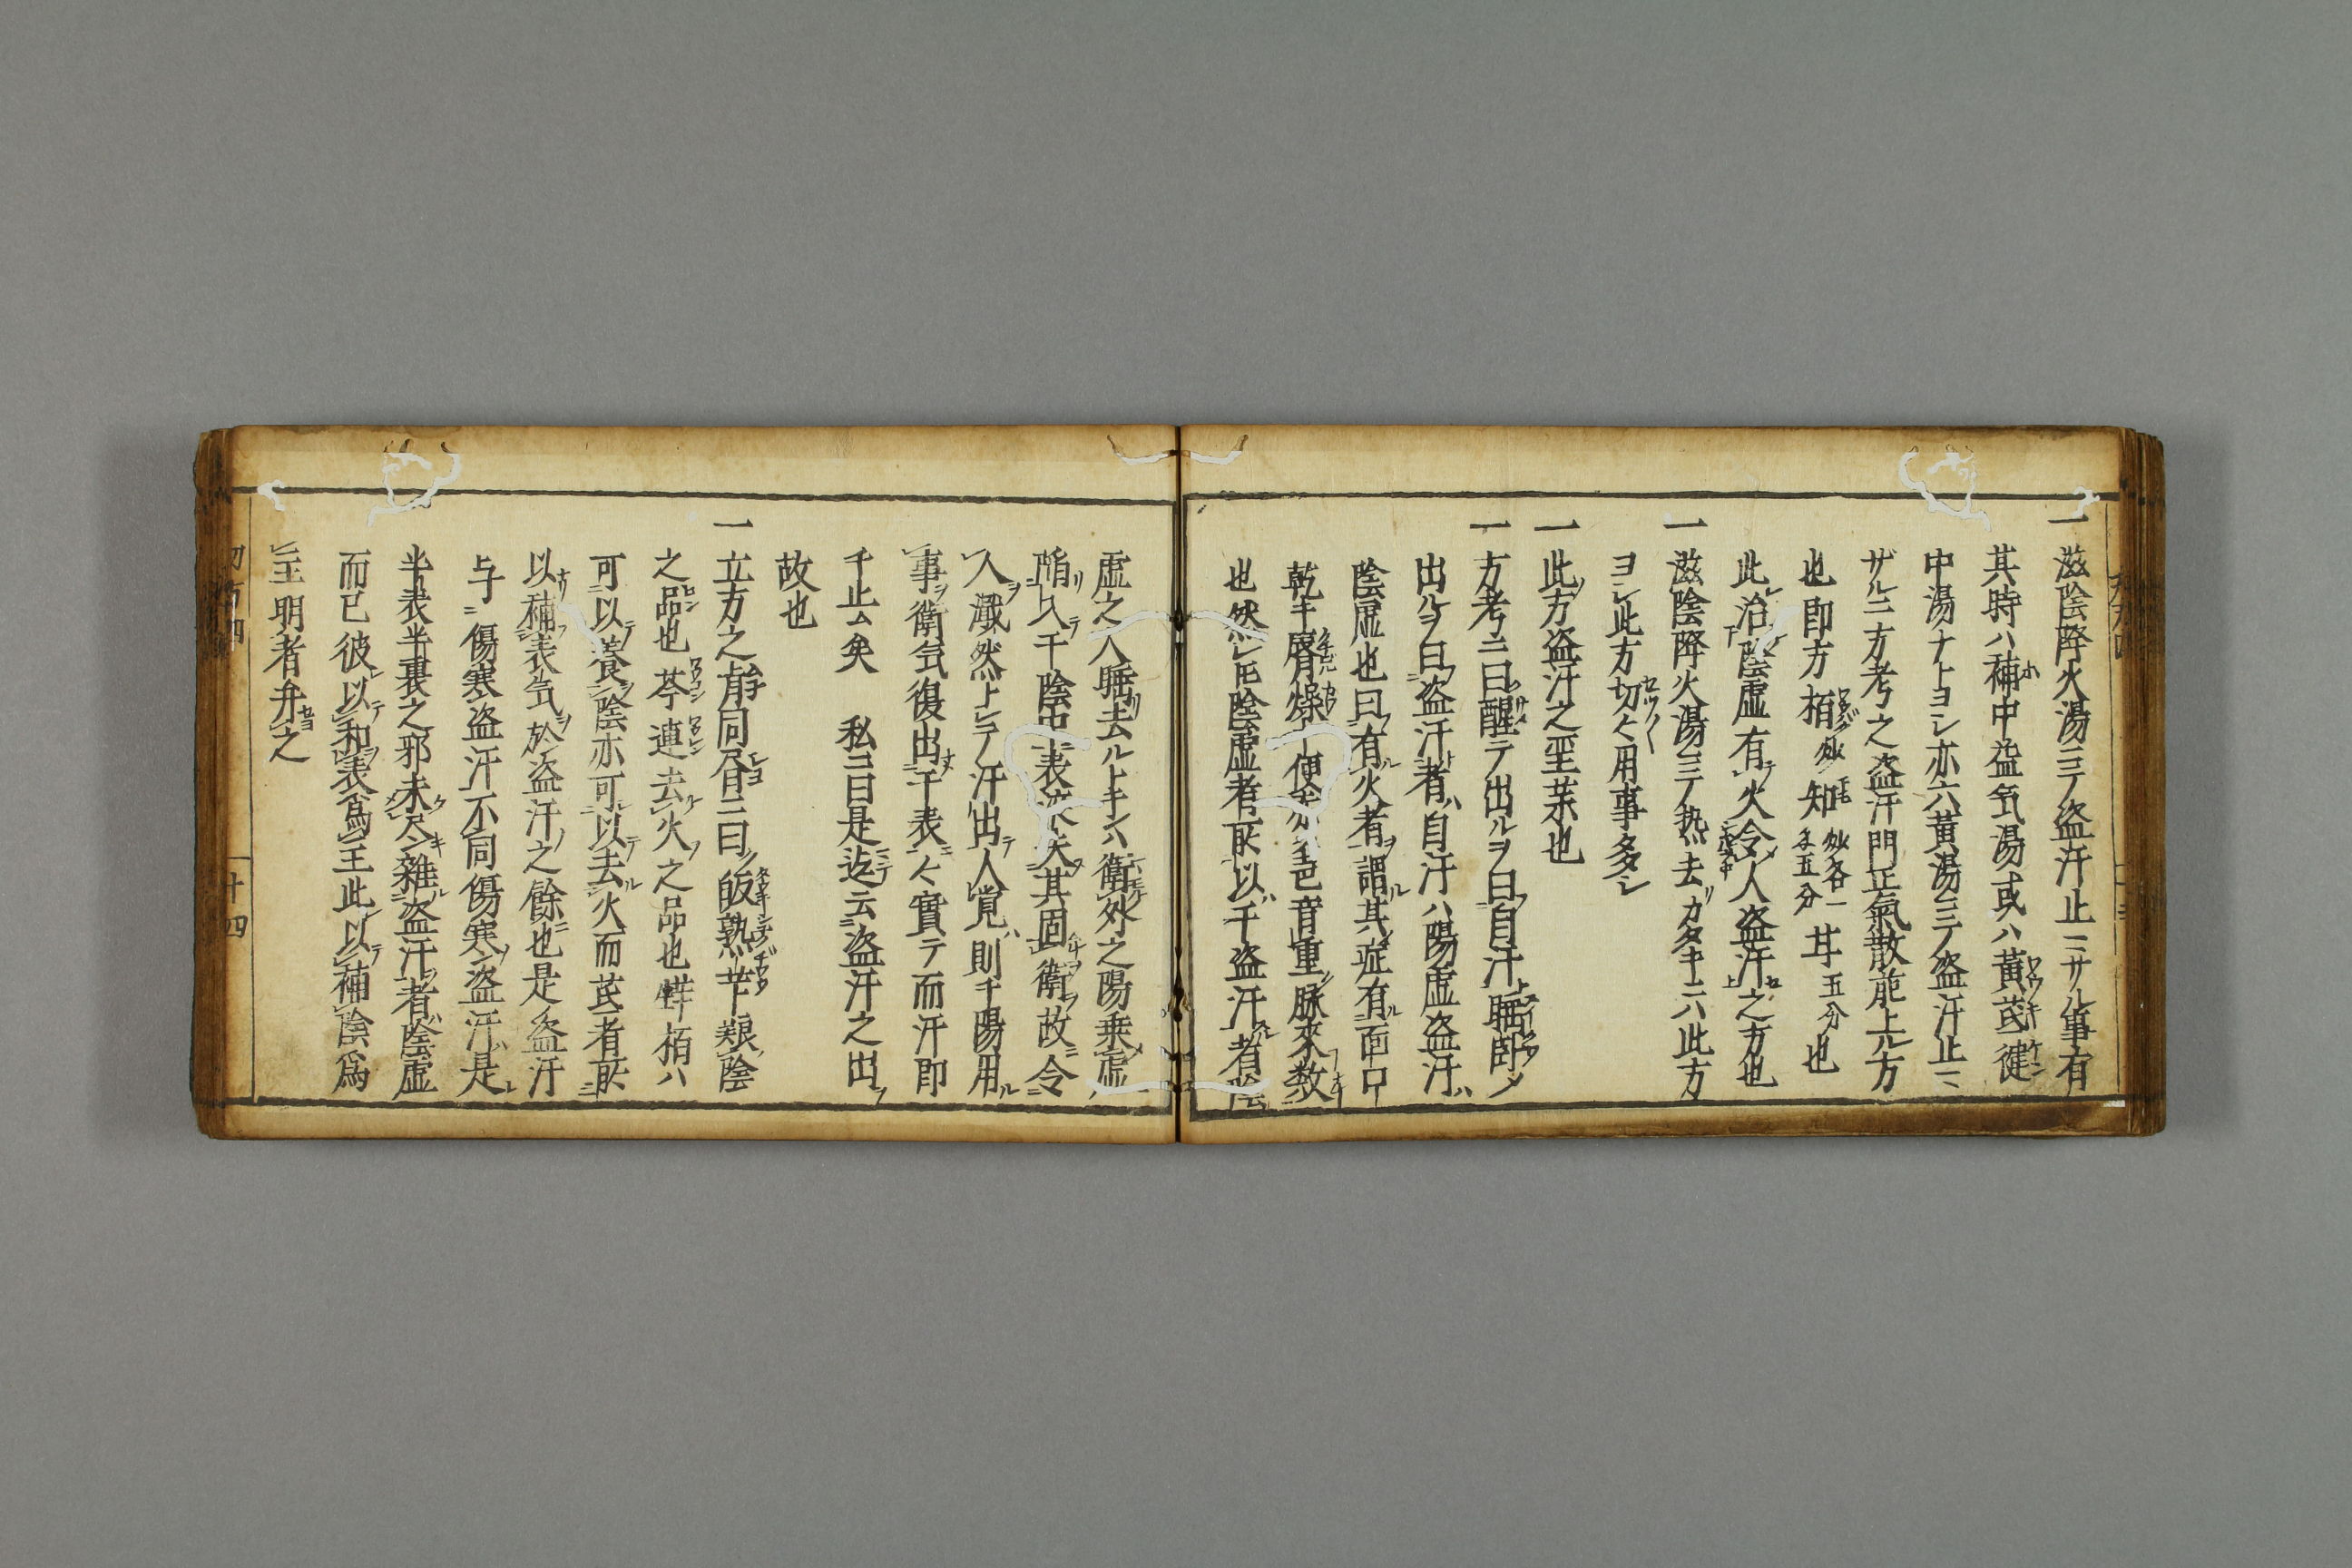 一滋陰降火湯ニテ盗汗止ニサル事有
其時ハ補中益気湯或ハ黄芪健
中湯ナトヨシ亦六黄湯ニテ盗汗止ニ
ザルニ方考之盗汗門正氣散能上ル方
也即方栢炒知炒各一钅五分甘五分也
此治陰虚有火令人盗汗之方也
一滋陰降火湯ニテ熱去リカタキニハ此方
ヨシ此方切〻用事多シ
一此方盗汗之聖薬也
一方考ニ曰醒テ出ルヲ曰自汗ト睡臥ノ
出ルヲ曰盗汗者ハ自汗ハ陽虚盗汗ハ
陰虚也曰有火者謂其症有面口
乾キ唇燥キ便赤声音重脉來数
也然レ𪜈陰虚者所以千盗汗者陰
虚之人睡去ルトキハ衛外之陽乗虚
陥入テ千陰中表失其固衛故令
人濈然トシテ汗出人覚則千陽用
事衛気復出千表〻實テ而汗即
千止ム矣　私ニ曰是迄云盗汗之出
故也
一立方之旹同昏ニ曰飯熟苄艱陰
之品也芩連去火之品也栢ハ
可以養陰亦可以去火而芪者所
以補表気於盗汗之餘也是盗汗
与傷寒盗汗不同傷寒盗汗是
半表半裏之邪未尽雜盗汗者陰虚
而已彼以和表爲主此以補陰爲
主明者弁之
十四